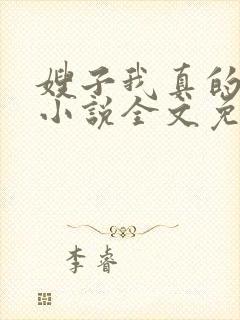 嫂子我真的
小说全文免
李睿